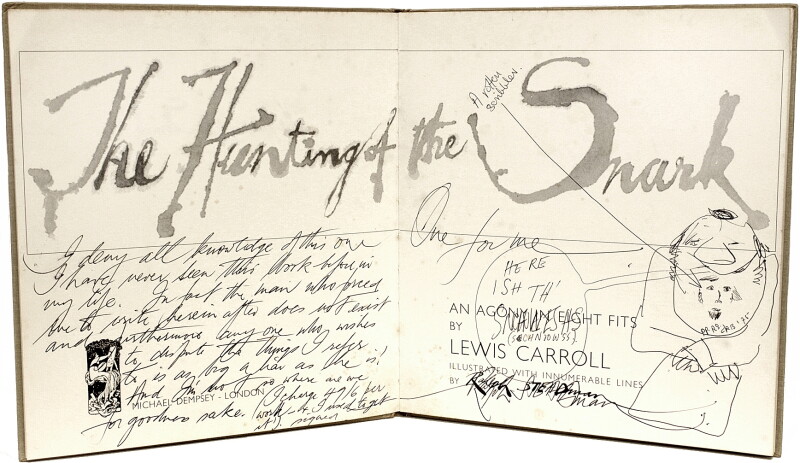 The Hunting of the Snark
I deny all knowledge of this one
I have never seen this work before in
my life. In fact the man who forced
me to write herein after does not exist
and furthermore anyone who wishes
to dispute the things I refer
to is as big a liar as he is!
And I'm not so where are we
for goodness sake.
MICHAEL DEMPSEY - LONDON
A rotten
scribbler.
One for me
HERE
ISH TH'
AN AGONY IN EIGHT FITS
BY
LEWIS CARROLL
ILLUSTRATED WITH INNUMERABLE LINES
BY Ralph STEADman